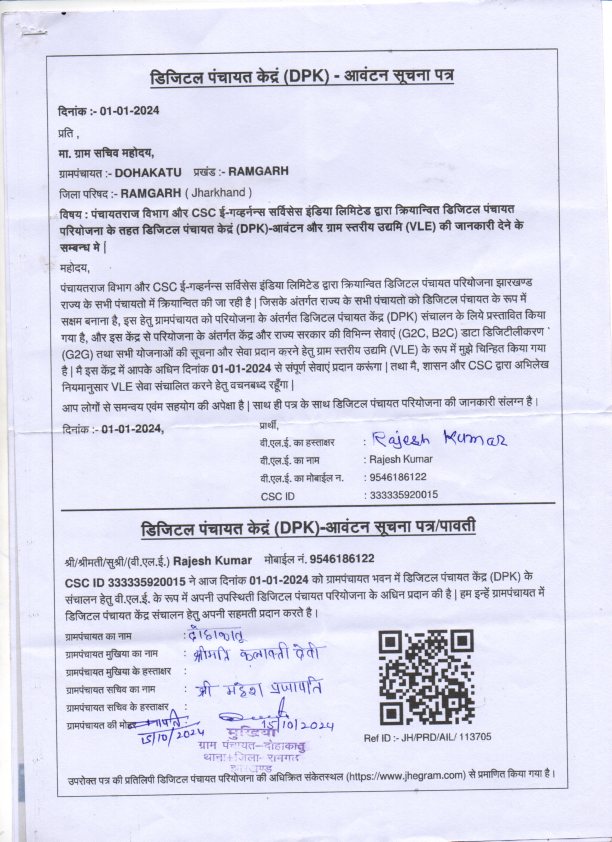 डिजिटल पंचायत केद्रं (DPK) - आवंटन सूचना पत्र
दिनांक :- 01-01-2024
प्रति ,
मा. ग्राम सचिव महोदय,
ग्रामपंचायत :- DOHAKATU प्रखंड :- RAMGARH
जिला परिषद :- RAMGARH ( Jharkhand )
विषय : पंचायतराज विभाग और CSC ई-गव्हर्नन्स सर्विसेस इंडिया लिमिटेड द्वारा क्रियान्वित डिजिटल पंचायत
परियोजना के तहत डिजिटल पंचायत केंद्रं (DPK)-आवंटन और ग्राम स्तरीय उद्यमि (VLE) की जानकारी देने के
सम्बन्ध मे |
महोदय,
पंचायतराज विभाग और CSC ई-गव्हर्नन्स सर्विसेस इंडिया लिमिटेड द्वारा क्रियान्वित डिजिटल पंचायत परियोजना झारखण्ड
राज्य के सभी पंचायतो में क्रियान्वित की जा रही है | जिसके अंतर्गत राज्य के सभी पंचायतो को डिजिटल पंचायत के रूप में
सक्षम बनाना है, इस हेतु ग्रामपंचायत को परियोजना के अंतर्गत डिजिटल पंचायत केंद्र (DPK) संचालन के लिये प्रस्तावित किया
गया है, और इस केंद्र से परियोजना के अंतर्गत केंद्र और राज्य सरकार की विभिन्न सेवाएं (G2C, B2C) डाटा डिजिटीलीकरण
(G2G) तथा सभी योजनाओं की सूचना और सेवा प्रदान करने हेतु ग्राम स्तरीय उद्यमि (VLE) के रूप में मुझे चिन्हित किया गया
है | मै इस केंद्र में आपके अधिन दिनांक 01-01-2024 से संपूर्ण सेवाएं प्रदान करूंगा | तथा मै, शासन और CSC द्वारा अभिलेख
नियमानुसार VLE सेवा संचालित करने हेतु वचनबध्द रहूँगा |
आप लोगों से समन्वय एवंम सहयोग की अपेक्षा है | साथ ही पत्र के साथ डिजिटल पंचायत परियोजना की जानकारी संलग्न है |
दिनांक :- 01-01-2024,
प्रार्थी,
वी.एल.ई. का हस्ताक्षर : Rajesh Kumar
वी.एल.ई. का नाम : Rajesh Kumar
वी.एल.ई. का मोबाईल न. : 9546186122
CSC ID : 333335920015
डिजिटल पंचायत केद्रं (DPK)-आवंटन सूचना पत्र/पावती
श्री/श्रीमती/सुश्री/(वी.एल.ई.) Rajesh Kumar मोबाईल नं. 9546186122
CSC ID 333335920015 ने आज दिनांक 01-01-2024 को ग्रामपंचायत भवन में डिजिटल पंचायत केंद्र (DPK) के
संचालन हेतु वी.एल.ई. के रूप में अपनी उपस्थिती डिजिटल पंचायत परियोजना के अधिन प्रदान की है | हम इन्हें ग्रामपंचायत में
डिजिटल पंचायत केंद्र संचालन हेतु अपनी सहमती प्रदान करते है |
ग्रामपंचायत का नाम : दोहाकातु
ग्रामपंचायत मुखिया का नाम : श्रीमति कलावती देवी
ग्रामपंचायत मुखिया के हस्ताक्षर :
ग्रामपंचायत सचिव का नाम : श्री महेश प्रजापति
ग्रामपंचायत सचिव के हस्ताक्षर :
ग्रामपंचायत की
15/10/2024
15/10/2024
मुखिया
ग्राम पंचायत-दोहाकातु
थाना+जिला- रामगढ़
झारखण्ड
Ref ID :- JH/PRD/AIL/ 113705
उपरोक्त पत्र की प्रतिलिपी डिजिटल पंचायत परियोजना की अधिक्रित संकेतस्थल (https://www.jhegram.com) से प्रमाणित किया गया है |